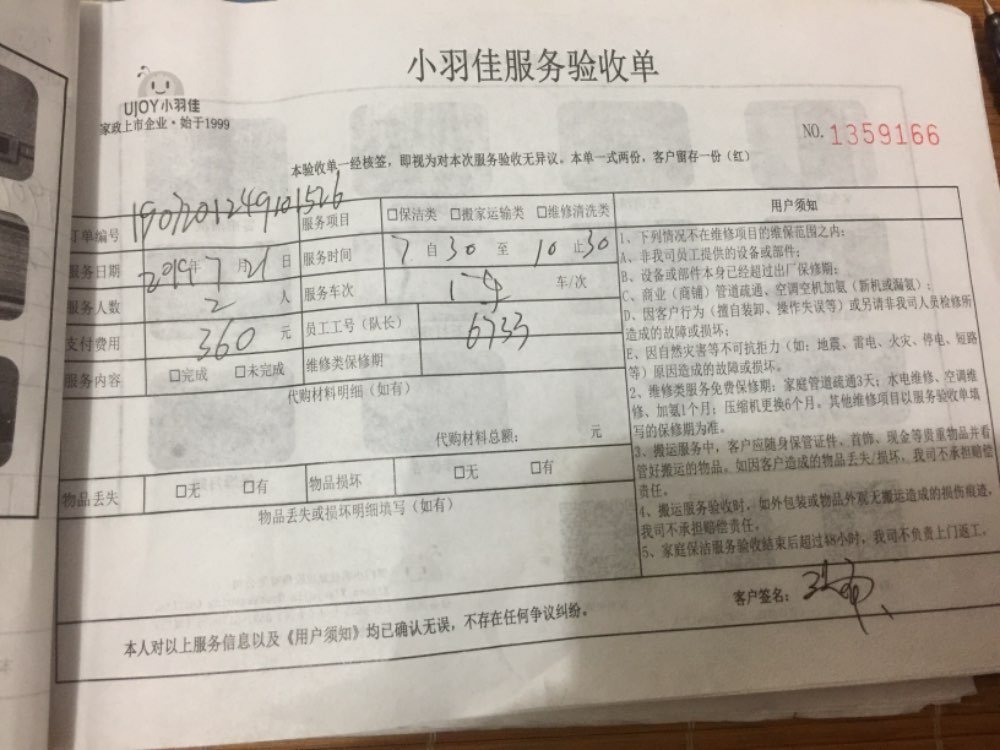 小羽佳服务验收单
UJOY小羽佳
家政上市企业·始于1999
NO. 1359166
本验收单一经核签，即视为对本次服务验收无异议。本单一式两份，客户留存一份（红）
订单编号 1907201249101526 服务项目 □保洁类 □搬家运输类 □维修清洗类
服务日期 2019年7月21日 服务时间 7自30至10止30
服务人数 2 人 服务车次 1 车/次
支付费用 360 元 员工工号（队长） 6733
服务内容 □完成 □未完成 维修类保修期
代购材料明细（如有）
代购材料总额： 元
物品丢失 □无 □有 物品损坏 □无 □有
物品丢失或损坏明细填写（如有）
用户须知
1、下列情况不在维修项目的维保范围之内：
A、非我司员工提供的设备或部件；
B、设备或部件本身已经超过出厂保修期；
C、商业（商铺）管道疏通、空调空机加氨（新机或漏氨）；
D、因客户行为（擅自装卸、操作失误等）或另请非我司人员检修所
造成的故障或损坏；
E、因自然灾害等不可抗拒力（如：地震、雷电、火灾、停电、短路
等）原因造成的故障或损坏。
2、维修类服务免费保修期：家庭管道疏通3天；水电维修、空调维
修、加氨1个月；压缩机更换6个月。其他维修项目以服务验收单填
写的保修期为准。
3、搬运服务中，客户应随身保管证件、首饰、现金等贵重物品并看
管好搬运的物品。如因客户造成的物品丢失/损坏，我司不承担赔偿
责任。
4、搬运服务验收时，如外包装或物品外观无搬运造成的损伤痕迹，
我司不承担赔偿责任。
5、家庭保洁服务验收结束后超过48小时，我司不负责上门返工。
客户签名：
本人对以上服务信息以及《用户须知》均已确认无误，不存在任何争议纠纷。